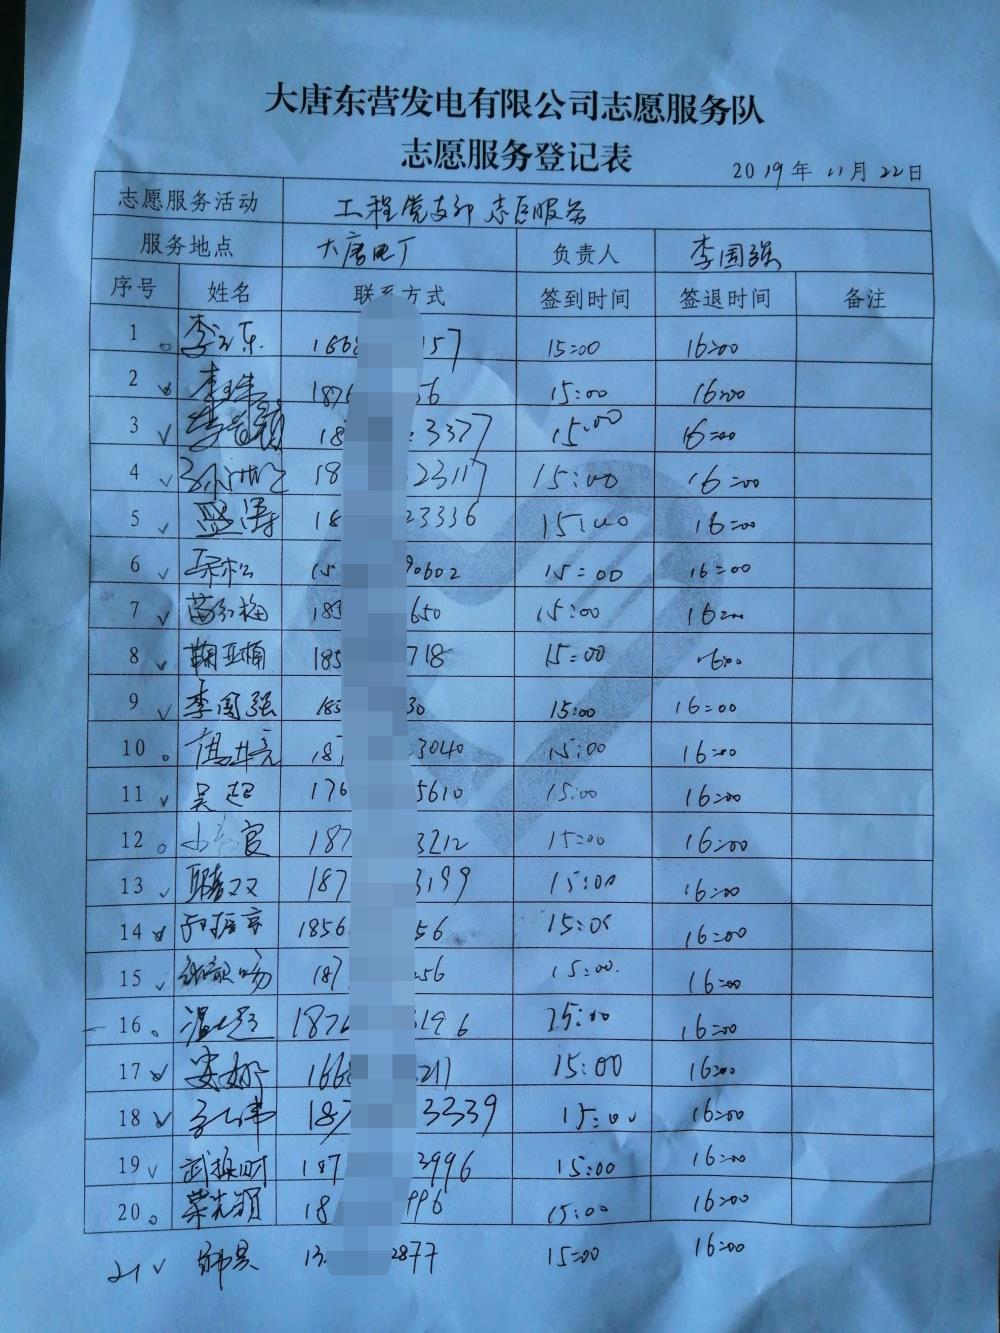 大唐东营发电有限公司志愿服务队
志愿服务登记表
2019年11月22日
志愿服务活动 工程党支部志愿服务
服务地点 大唐电厂 负责人 李国强
序号 姓名 联系方式 签到时间 签退时间 备注
1 李 东 1666 157 15:00 16:00
2 李 187 56 15:00 16:00
3 李 颖 18 3377 15:00 16:00
4 18 23117 15:00 16:00
5 ✓ 盛涛 18 23336 15:00 16:00
6 ✓ 松 15 90602 15:00 16:00
7 ✓ 苗红梅 185 650 15:00 16:00
8 ✓ 鞠亚楠 185 718 15:00 16:00
9 ✓ 李国强 185 30 15:00 16:00
10 187 3040 15:00 16:00
11 ✓ 吴超 176 5610 15:00 16:00
12 187 3212 15:00 16:00
13 ✓ 双双 187 3199 15:00 16:00
14 1856 56 15:00 16:00
15 ✓ 187 256 15:00. 16:00
16 温 1876 3196 15:00 16:00
17 ✓ 娄娜 1666 211 15:00 16:00
18 ✓ 伟 187 3339 15:00 16:00
19 ✓ 武振财 187 3996 15:00 16:00
20 荣光颖 18 996 15:00 16:00
21 ✓ 郭昊 13 2877 15:00 16:00